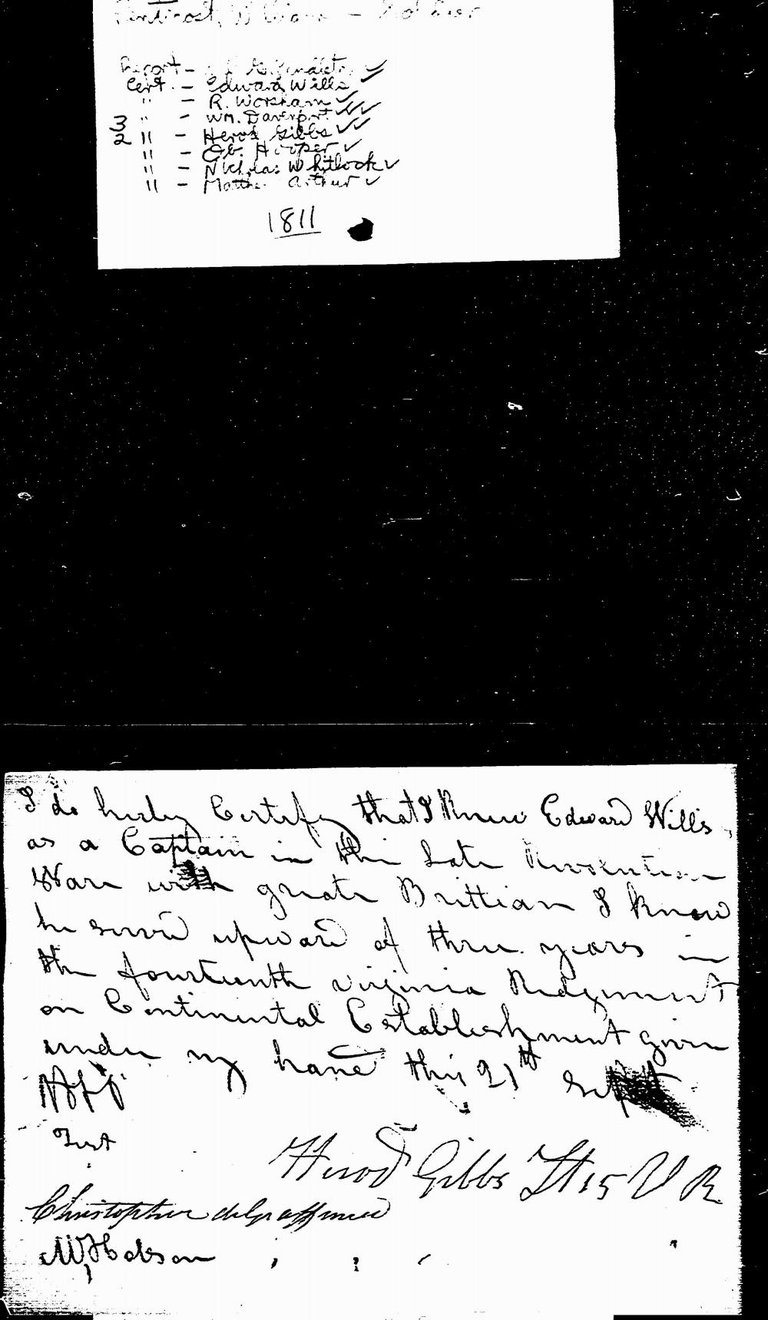 Report -
Cert. - Edward Wills
" - R. Worsham
" - Wm. Davenport
3/2 " - Herod Gibbs
" - Ob. Hooper
" - Nicholas Whitlock
" - Matthew Arthur
1811
I do hereby Certify that I Knew Edward Wills
as a Captain in the Late Revolution
Warr with greate Brittian I know
he served upward of three years in
the fourteenth virginia Ridgment
on Continental Establishment given
under my hand this 21st Sept
Test
Herod Gibbs Lt 15 V R
Christopher deGraffenried
W Hobson